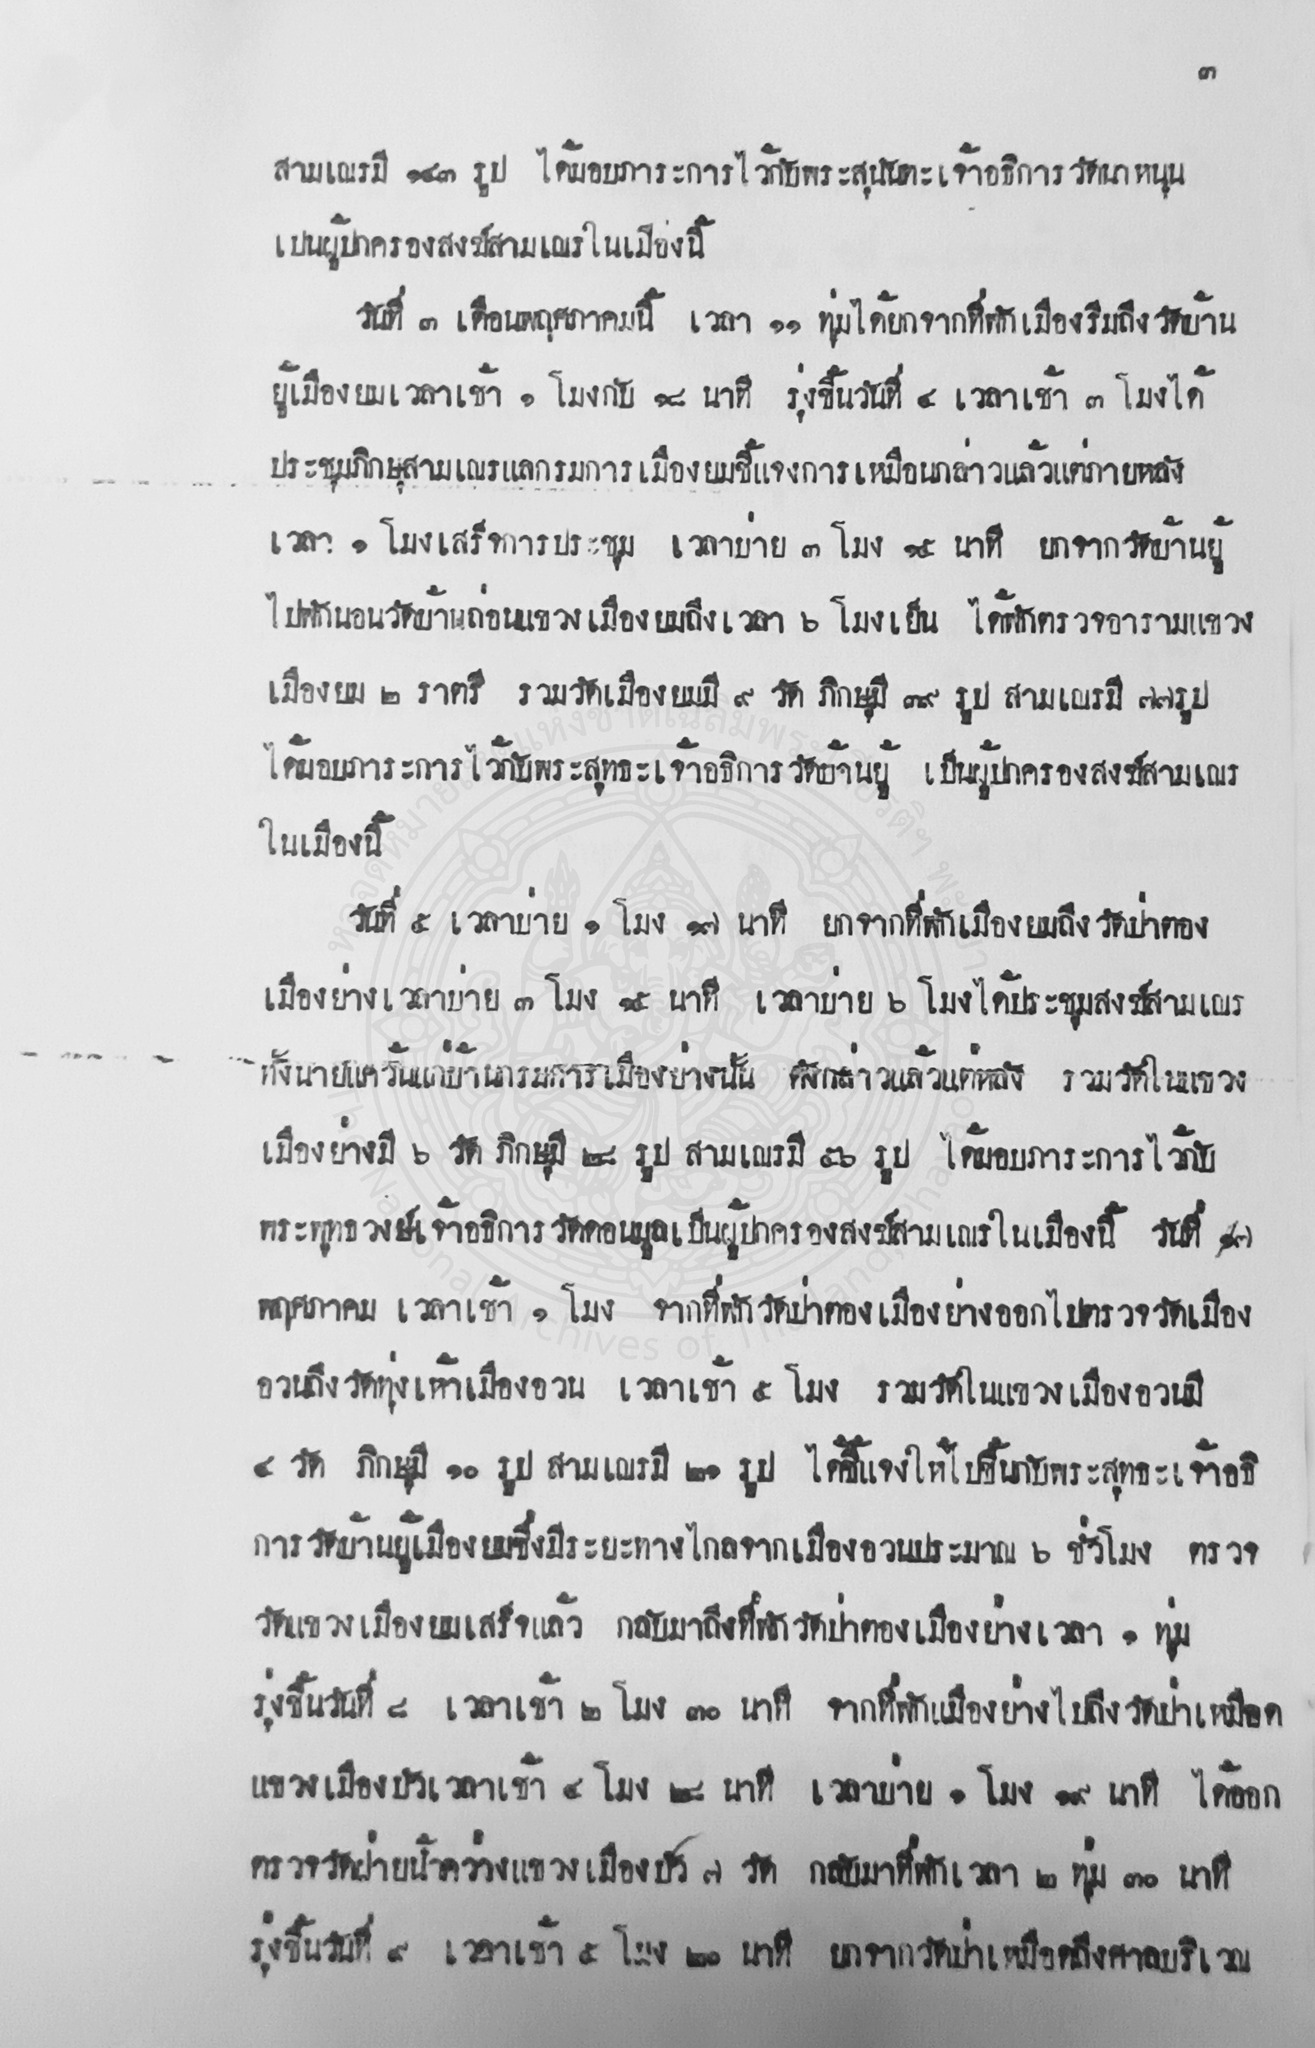 ๓
สามเณรมี ๑๔๓ รูป ได้มอบภาระการไว้กับพระสุนันตะเจ้าอธิการวัดนาหนุน
เปนผู้ปกครองสงฆ์สามเณรในเมืองนี้
วันที่ ๓ เดือนพฤศภาคมนี้ เวลา ๑๑ ทุ่มได้ยกจากที่พักเมืองริมถึงวัดบ้าน
ยู้เมืองยมเวลาเช้า ๑ โมงกับ ๑๘ นาที รุ่งขึ้นวันที่ ๔ เวลาเช้า ๓ โมงได้
ประชุมภิกษุสามเณรแลกรมการเมืองยมชี้แจงการเหมือนกล่าวแล้วแต่ภายหลัง
เวลา ๑ โมงเสร็จการประชุม เวลาบ่าย ๓ โมง ๑๕ นาที ยกจากวัดบ้านยู้
ไปพักนอนวัดบ้านถ่อนแขวงเมืองยมถึงเวลา ๖ โมงเย็น ได้พักตรวจอารามแขวง
เมืองยม ๒ ราตรี รวมวัดเมืองยมมี ๙ วัด ภิกษุมี ๓๙ รูป สามเณรมี ๗๗รูป
ได้มอบภาระการไว้กับพระสุทธะเจ้าอธิการวัดบ้านยู้ เป็นผู้ปกครองสงฆ์สามเณร
ในเมืองนี้
วันที่ ๕ เวลาบ่าย ๑ โมง ๑๗ นาที ยกจากที่พักเมืองยมถึงวัดป่าตอง
เมืองย่างเวลาบ่าย ๓ โมง ๑๕ นาที เวลาบ่าย ๖ โมงได้ประชุมสงฆ์สามเณร
ทั้งนายแคว้นแก่บ้านกรมการเมืองย่างนั้น ดังกล่าวแล้วแต่หลัง รวมวัดในแขวง
เมืองย่างมี ๖ วัด ภิกษุมี ๒๘ รูป สามเณรมี ๕๖ รูป ได้มอบภาระการไว้กับ
พระพุทธวงษ์เจ้าอธิการวัดดอนมูลเป็นผู้ปกครองสงฆ์สามเณรในเมืองนี้ วันที่ ๗
พฤศภาคม เวลาเช้า ๑ โมง จากที่พักวัดป่าตองเมืองย่างออกไปตรวจวัดเมือง
อวนถึงวัดทุ่งเห้าเมืองอวน เวลาเช้า ๕ โมง รวมวัดในแขวงเมืองอวนมี
๔ วัด ภิกษุมี ๑๐ รูป สามเณรมี ๒๑ รูป ได้ชี้แจงให้ไปขึ้นกับพระสุทธะเจ้าอธิ
การวัดบ้านยู้เมืองยมซึ่งมีระยะทางไกลจากเมืองอวนประมาณ ๖ ชั่วโมง ตรวจ
วัดแขวงเมืองยมเสร็จแล้ว กลับมาถึงที่พักวัดป่าตองเมืองย่างเวลา ๑ ทุ่ม
รุ่งขึ้นวันที่ ๘ เวลาเช้า ๒ โมง ๓๐ นาที จากที่พักเมืองย่างไปถึงวัดป่าเหมือด
แขวงเมืองปัวเวลาเช้า ๔ โมง ๒๘ นาที เวลาบ่าย ๑ โมง ๑๙ นาที ได้ออก
ตรวจวัดฝ่ายน้ำคว่างแขวงเมืองปัว ๗ วัด กลับมาที่พักเวลา ๒ ทุ่ม ๓๐ นาที
รุ่งขึ้นวันที่ ๙ เวลาเช้า ๕ โมง ๒๐ นาที ยกจากวัดป่าเหมือดถึงศาลบริเวณ
หอจดหมายเหตุแห่งชาติเฉลิมพระเกียรติฯ พะเยา
The National Archives of Thailand, Phayao